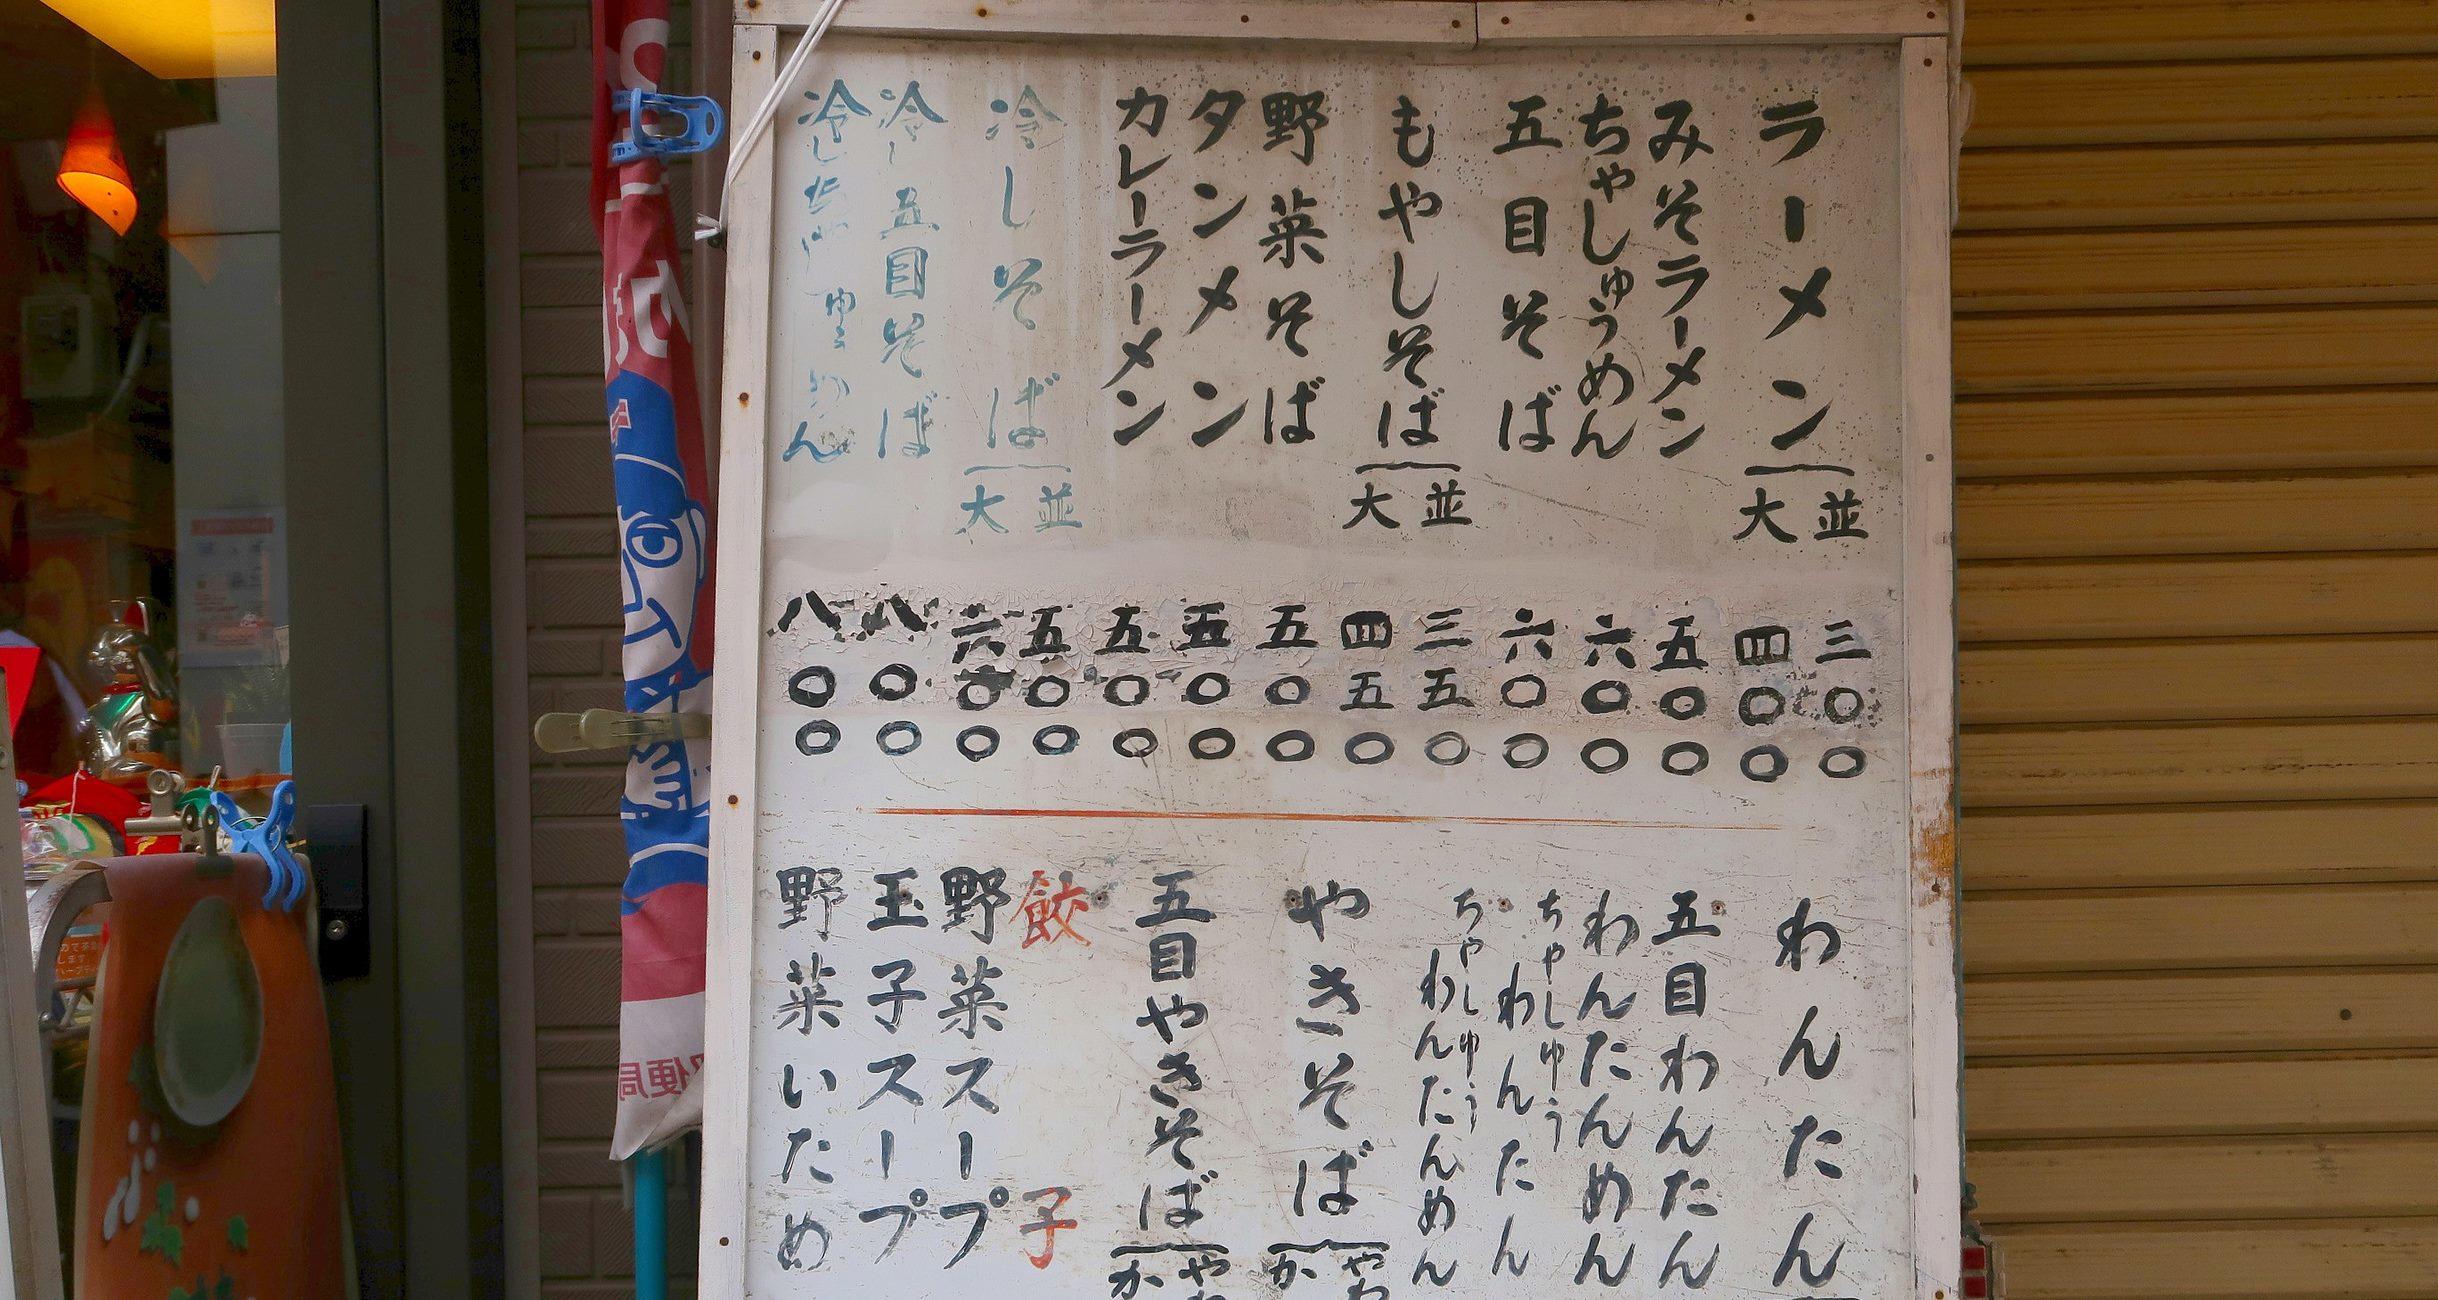 ラーメン 並 大
みそラーメン
ちゃしゅうめん
五目そば
もやしそば 並 大
野菜そば
タンメン
カレーラーメン
冷しそば 並 大
冷し五目そば
冷しちゃしゅうめん
三〇〇
四〇〇
五〇〇
六〇〇
六〇〇
三五〇
四五〇
五〇〇
五〇〇
五〇〇
五〇〇
六〇〇
八〇〇
八〇〇
わんたん
五目わんたん
わんたんめん
ちゃしゅうわんたん
ちゃしゅうわんたんめん
やきそば
五目やきそば
餃子
野菜スープ
玉子スープ
野菜いため